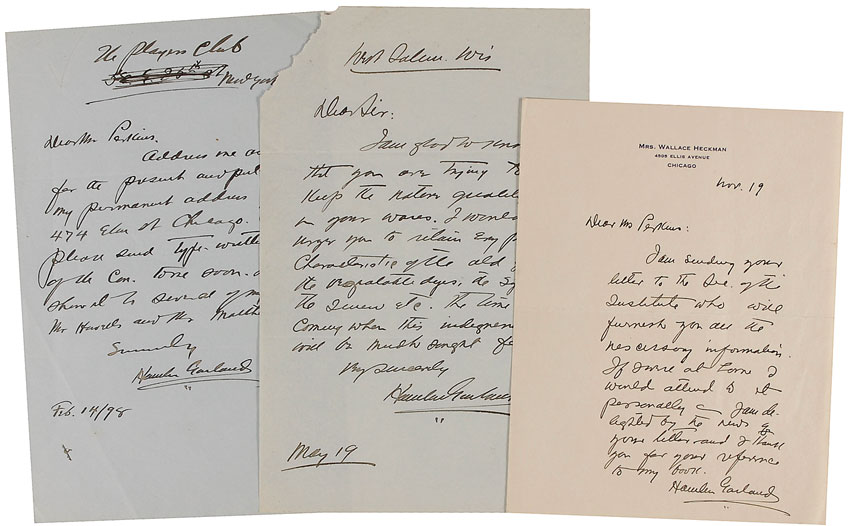 The Players Club
New York
Dear Mr Perkins.
Address me
for the present and
my permanent address
474 Elm st Chicago.
please send type-written
of the Con.
show it to several of my
Mr Howells and Mr Matth
Sincerely
Hamlin Garland
Feb. 14/98
West Salem. Wis
Dear Sir:
I am glad to know
that you are trying to
keep the native qualities
in your wares. I would
urge you to retain every
characteristic of the old
the vegetable dyes, the
the etc. The time
coming when this
will be much sought for
Very sincerely
Hamlin Garland
May 19
MRS. WALLACE HECKMAN
4505 ELLIS AVENUE
CHICAGO
Nov. 19
Dear Mr Perkins:
I am sending your
letter to the Sec. of the
Institute who will
furnish you all the
necessary information.
If I were at home I
would attend to it
personally I am de-
lighted by the news of
your letter and I thank
you for your reference
to my book.
Hamlin Garland